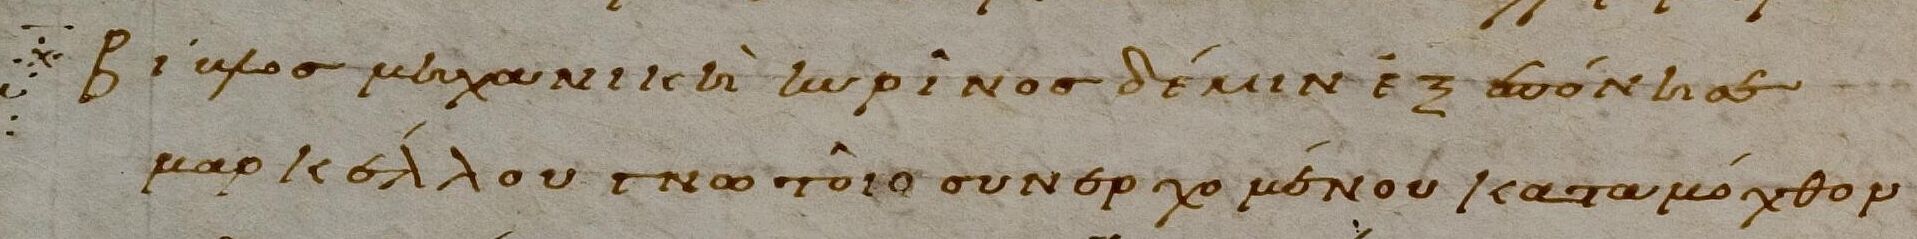 βίβλος μηχανικὴ κυρῖνος δέμιν ἐξεπόνησε
μαρκέλλου γνωτοῖο συνερχομένου καταμόχθον